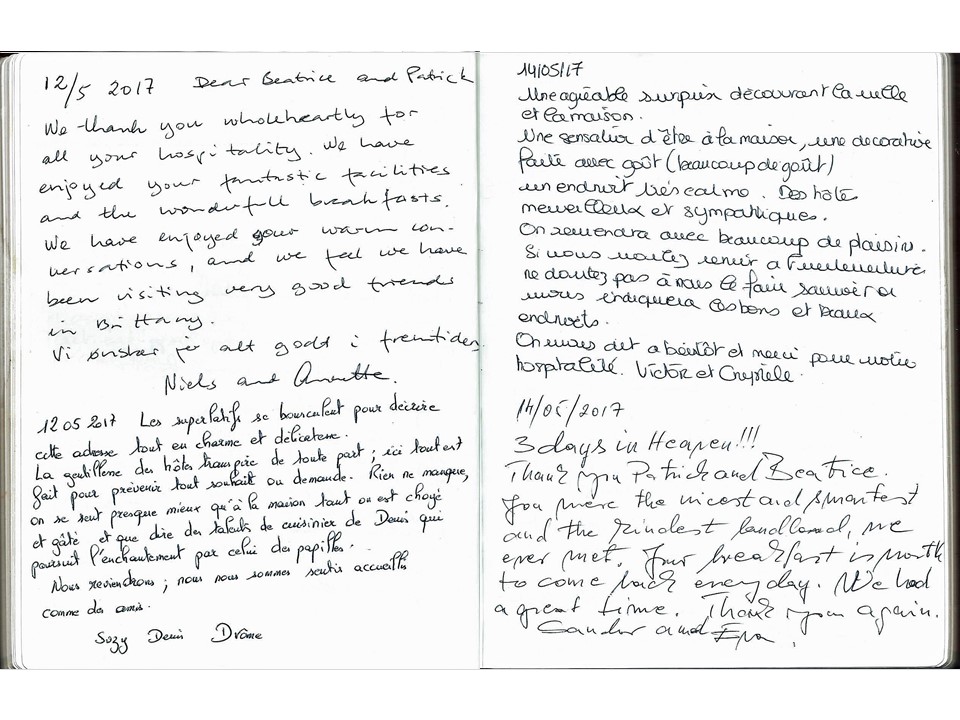 12/5 2017 Dear Beatrice and Patrick
We thank you wholeheartly for
all your hospitality. We have
enjoyed your fantastic facilities
and the wonderfull breakfasts.
We have enjoyed your warm con-
versations, and we feel we have
been visiting very good friends
in Brittany.
Vi ønsker jer alt godt i fremtiden.
Niels and Annette.
12 05 2017 Les superlatifs se bousculent pour décrire
cette adresse tout en charme et délicatesse.
La gentillesse des hôtes transpire de toute part ; ici tout est
fait pour prévenir tout souhait ou demande. Rien ne manque,
on se sent presque mieux qu'à la maison tant on est choyé
et gâté et que dire des talents de cuisinier de Denis qui
poursuit l'enchantement par celui des papilles.
Nous reviendrons ; nous nous sommes sentis accueillis
comme des amis.
Suzy Denis Drôme
14/05/17
Une agéable surprise découvrant la ville
et la maison.
Une sensation d'être à la maison, une decorative
faite avec goût (beaucoup de goût)
un endroit très calme. Des hôte
merveilleux et sympathiques.
On reviendra avec beaucoup de plaisir.
Si vous voulez venir a
ne doutez pas à nous le faire sauvoir on
vous indiquera les bons et beaux
endroits.
On vous dit a bientôt et merci pour votre
hospitalité. Victor et Crystele.
14/05/2017
3 days in Heaven!!!
Thank you Patrick and Beatrice.
You were the nicest and smartest
and the kindest landlord, we
ever met. Your breakfast is worth
to come back every day. We had
a great time. Thank you again.
Sandor and Eva.